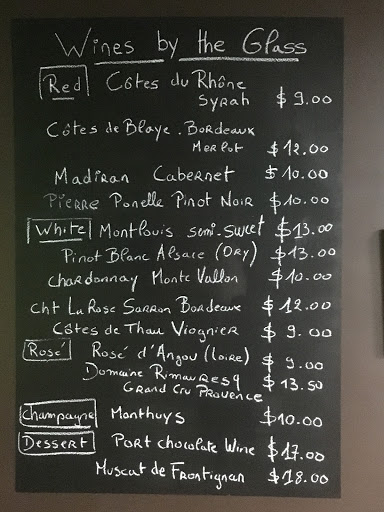 Wines by the Glass
Red Côtes du Rhône
Syrah $9.00
Côtes de Blaye. Bordeaux
Merlot $12.00
Madiran Cabernet $10.00
Pierre Ponelle Pinot Noir $10.00
White Montlouis semi-sweet $13.00
Pinot Blanc Alsace (Dry) $13.00
Chardonnay Monte Vallon $10.00
Cht La Rose Sarron Bordeaux $12.00
Côtes de Thau Viognier $9.00
Rosé Rosé d'Anjou (Loire) $9.00
Domaine Rimauresq $13.50
Grand Cru Provence
Champagne Monthuys $10.00
Dessert Port chocolate Wine $17.00
Muscat de Frontignan $18.00